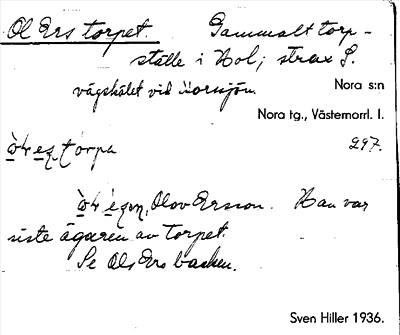 Ol Ers torpet. Gammalt torp-
ställe i Hol; strax S.
vägskälet vid Norsjön.
Nora s:n
Nora tg., Västernorrl. l.
297.
torpa
Olov Ersson. Han var
siste ägaren av torpet.
Se Ols Ers backen.
Sven Hiller 1936.